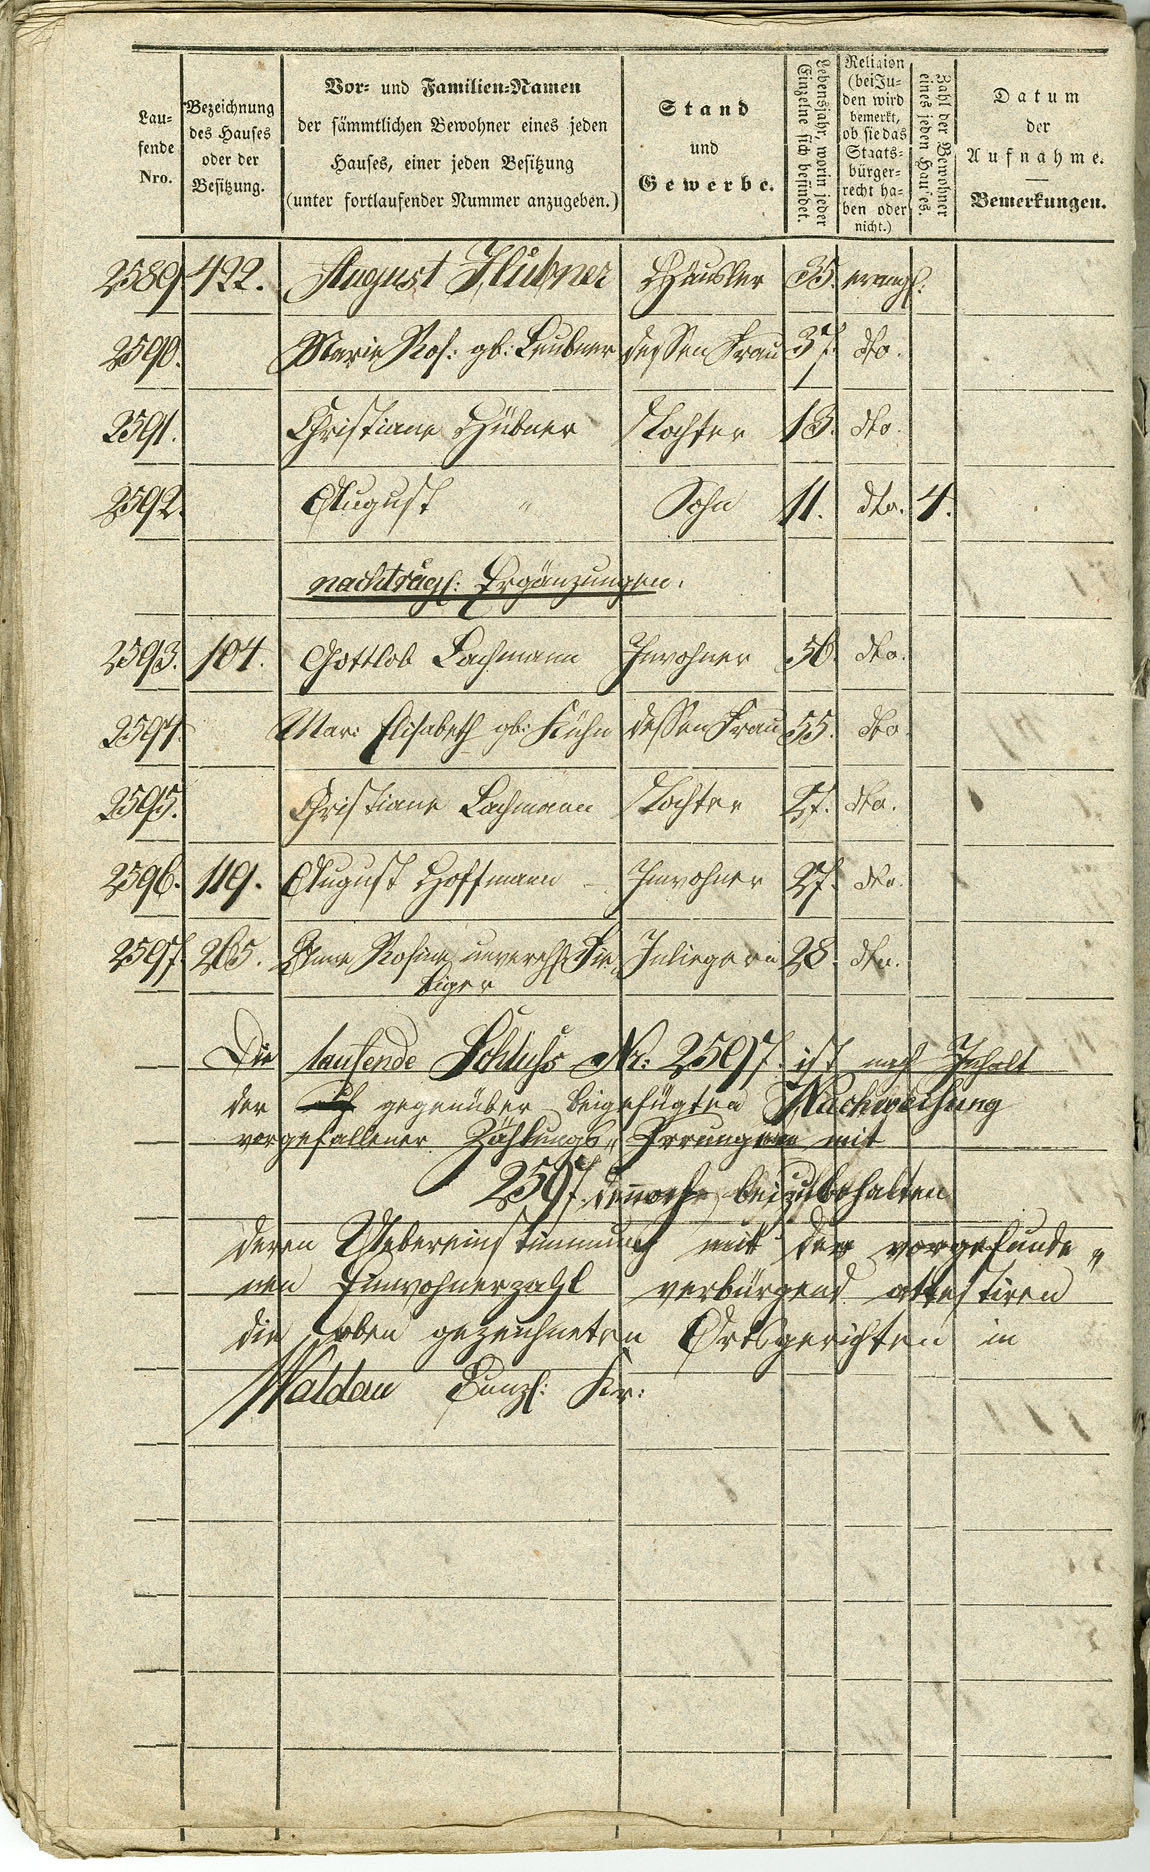 Lau-
fende
Nro.
Bezeichnung
des Hauses
oder der
Besitzung.
Vor- und Familien-Namen
der sämmtlichen Bewohner eines jeden
Hauses, einer jeden Besitzung
(unter fortlaufender Nummer anzugeben.)
Stand
und
Gewerbe.
Lebensjahr, worin jeder
Einzelne sich befindet.
Religion
(bei Ju-
den wird
bemerkt,
ob sie das
Staats-
bürger-
recht ha-
ben oder
nicht.)
Zahl der Bewohner
eines jeden Hauses.
Datum
der
Aufnahme.
Bemerkungen.
2589 422. August Hübner Häusler 35. evangl.
2590. Marie Ros: gb: Leubner dessen Frau 37. dto.
2591. Christiane Hübner Tochter 13. dto.
2592. August " Sohn 11. dto. 4.
nachträgl: Ergänzungen.
2593. 104. Gottlob Lachmann Inwohner 56. dto.
2594. Mar: Elisabeth gb: Kühn dessen Frau 55. dto.
2595. Christiane Lachmann Tochter 27. dto.
2596. 119. August Hoffmann – Inwohner 27. dto.
2597. 265. Anne Rosine unverehl. Inliegerin 28. dto.
Die laufende Schluss Nr: 2597. ist nach Inhalt
der gegenüber beigefügten Nachweisung
vorgefallener Zählungs" Irrungen mit
2597. dennoch beizubehalten
deren Uebereinstimmung mit der vorgefunde"
nen Einwohnerzahl verbürgend attestiren
die oben gezeichneten Ortsgerichten in
Waldau Bunzl: Kr: